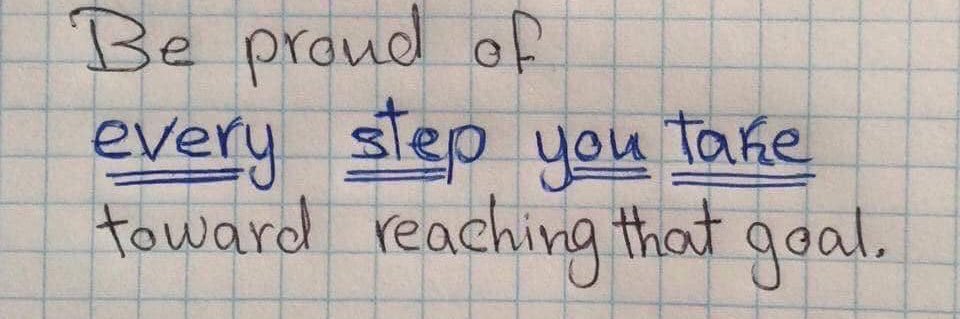 Be proud of
every step you take
toward reaching that goal.